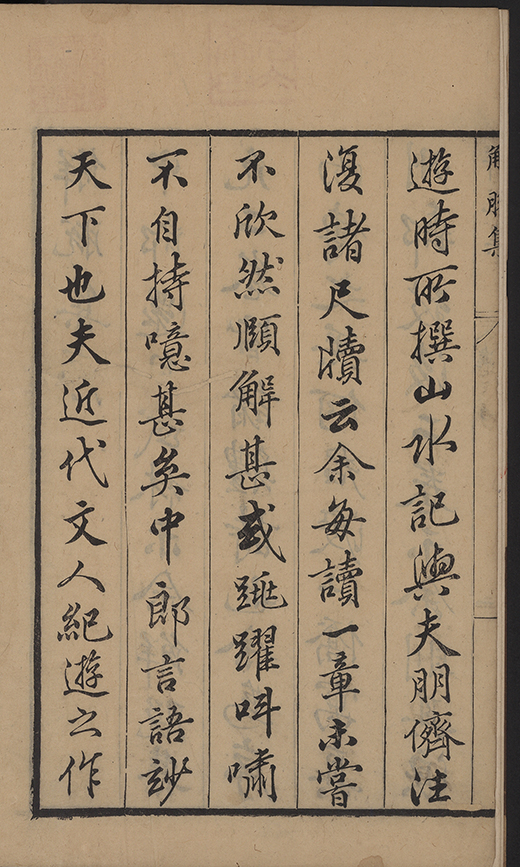 解脫集
遊時所撰山水記與夫朋儕往
復諸尺牘云余每讀一章未嘗
不欣然頤解甚或跳躍叫嘯
不自持噫甚矣中郎言語玅
天下也夫近代文人紀遊之作